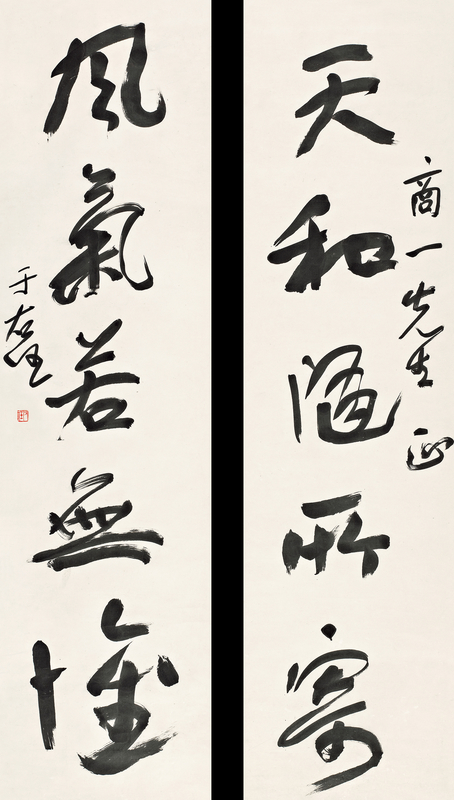 商一先生 正
天和隨所寄
風氣若無懷
于右任